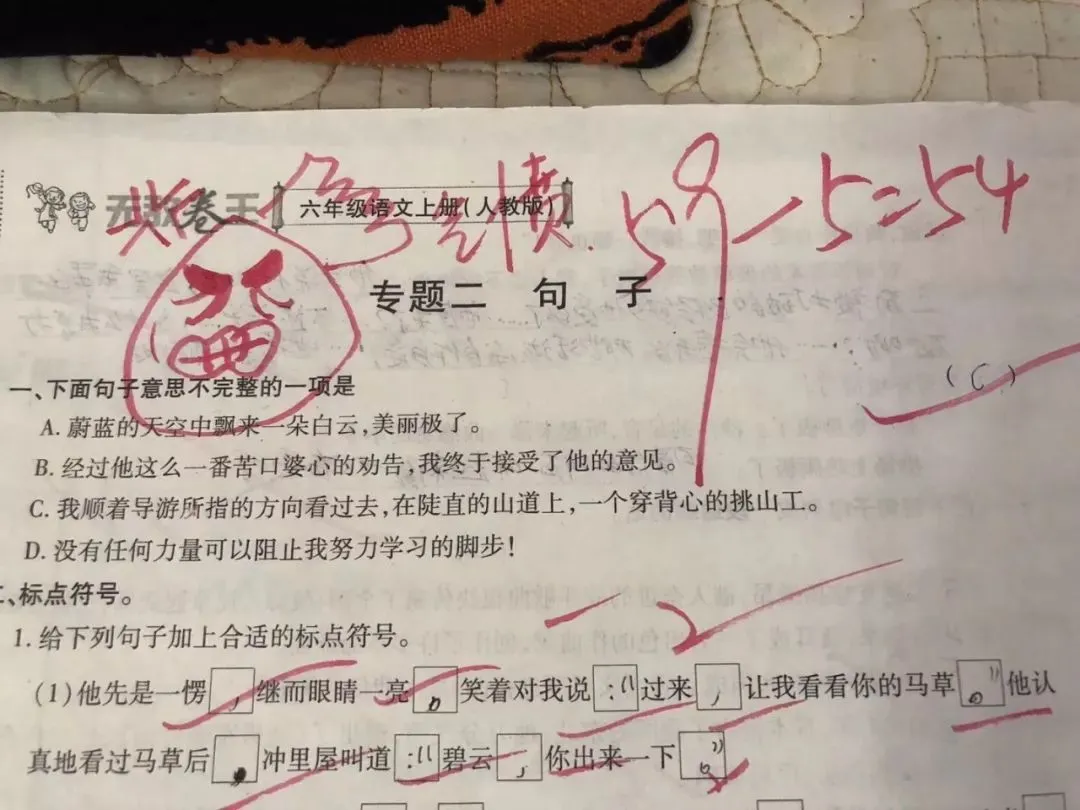 无敌卷王
六年级语文上册(人教版)
59-5=54
专题二 句子
一、下面句子意思不完整的一项是 (C)
A. 蔚蓝的天空中飘来一朵白云,美丽极了。
B. 经过他这么一番苦口婆心的劝告,我终于接受了他的意见。
C. 我顺着导游所指的方向看过去,在陡直的山道上,一个穿背心的挑山工。
D. 没有任何力量可以阻止我努力学习的脚步!
、标点符号。
-2
1. 给下列句子加上合适的标点符号。
(1)他先是一愣,继而眼睛一亮,笑着对我说:“过来,让我看看你的马草。”他认
真地看过马草后,冲里屋叫道:“碧云,你出来一下。”